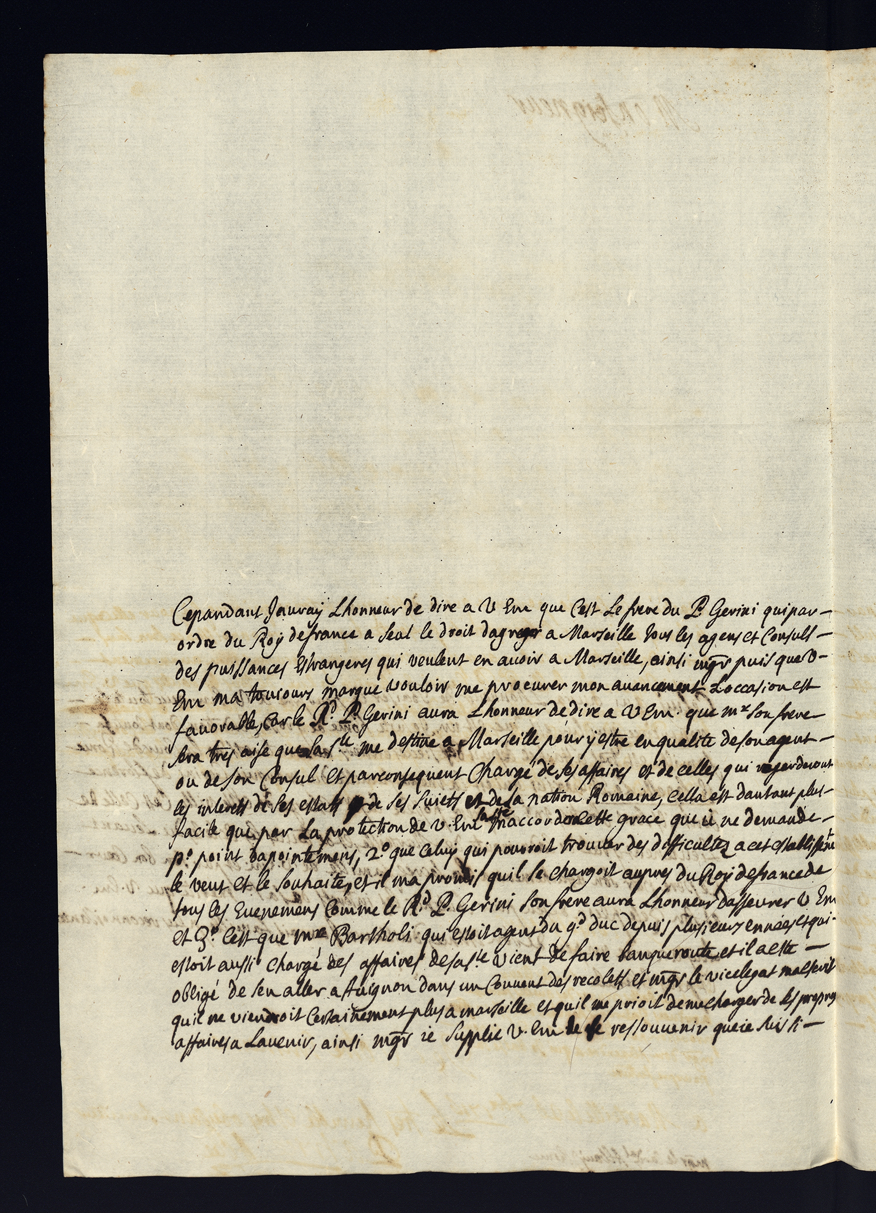 Cepandant Jauray Lhonneur de dire a V Em que Cest Le frere du P. Gerini qui par
ordre du Roy de france a seul le droit dagreger a Marseille tous les agens et Consuls
des puissances Estrangeres qui veulent en avoir a Marseille, ainsi mgr puis que V
Em ma toucours marqué vouloir me procurer mon avancement Loccasion est
favorable, Car le Rd. P. Gerini aura Lhonneur de dire a V Em. que mr son frere
sera tres aise que sa Ste me destine a Marseille pour y estre en qualité de son agent
ou de son Consul Et par consequent Chargé de ses affaires et de celles qui regarderont
les interets de ses estats de ses sujets et de la nation Romaine, Cella est dautant plus
facile que par La protection de V. Em sa Ste maccordera Cette grace que ie ne demande
po. point dapointemens, 2o. que Celuy qui pourroit trouver des difficultez a cet establissemt
le veut et le souhaite, et il ma promis quil se chargoit aupres du Roy de france de
tous les Evenemens Comme le Rd. P. Gerini son frere aura Lhonneur dasseurer V Em
et 3o. Cest que mr Bartholi qui estoit agent du gd duc depuis plusieurs ennées et qui
estoit aussi Chargé des affaires de sa Ste vient de faire banqueroute et il a esté
obligé de sen aller a Avignon dans un Couvent des recolets et mgr le vicelegat
quil ne viendroit Certainement plus a marseille et quil me prioit de me charger de ses propres
affaires a Lavenir, ainsi mgr ie supplie V. Em de se ressouvenir que ie suis